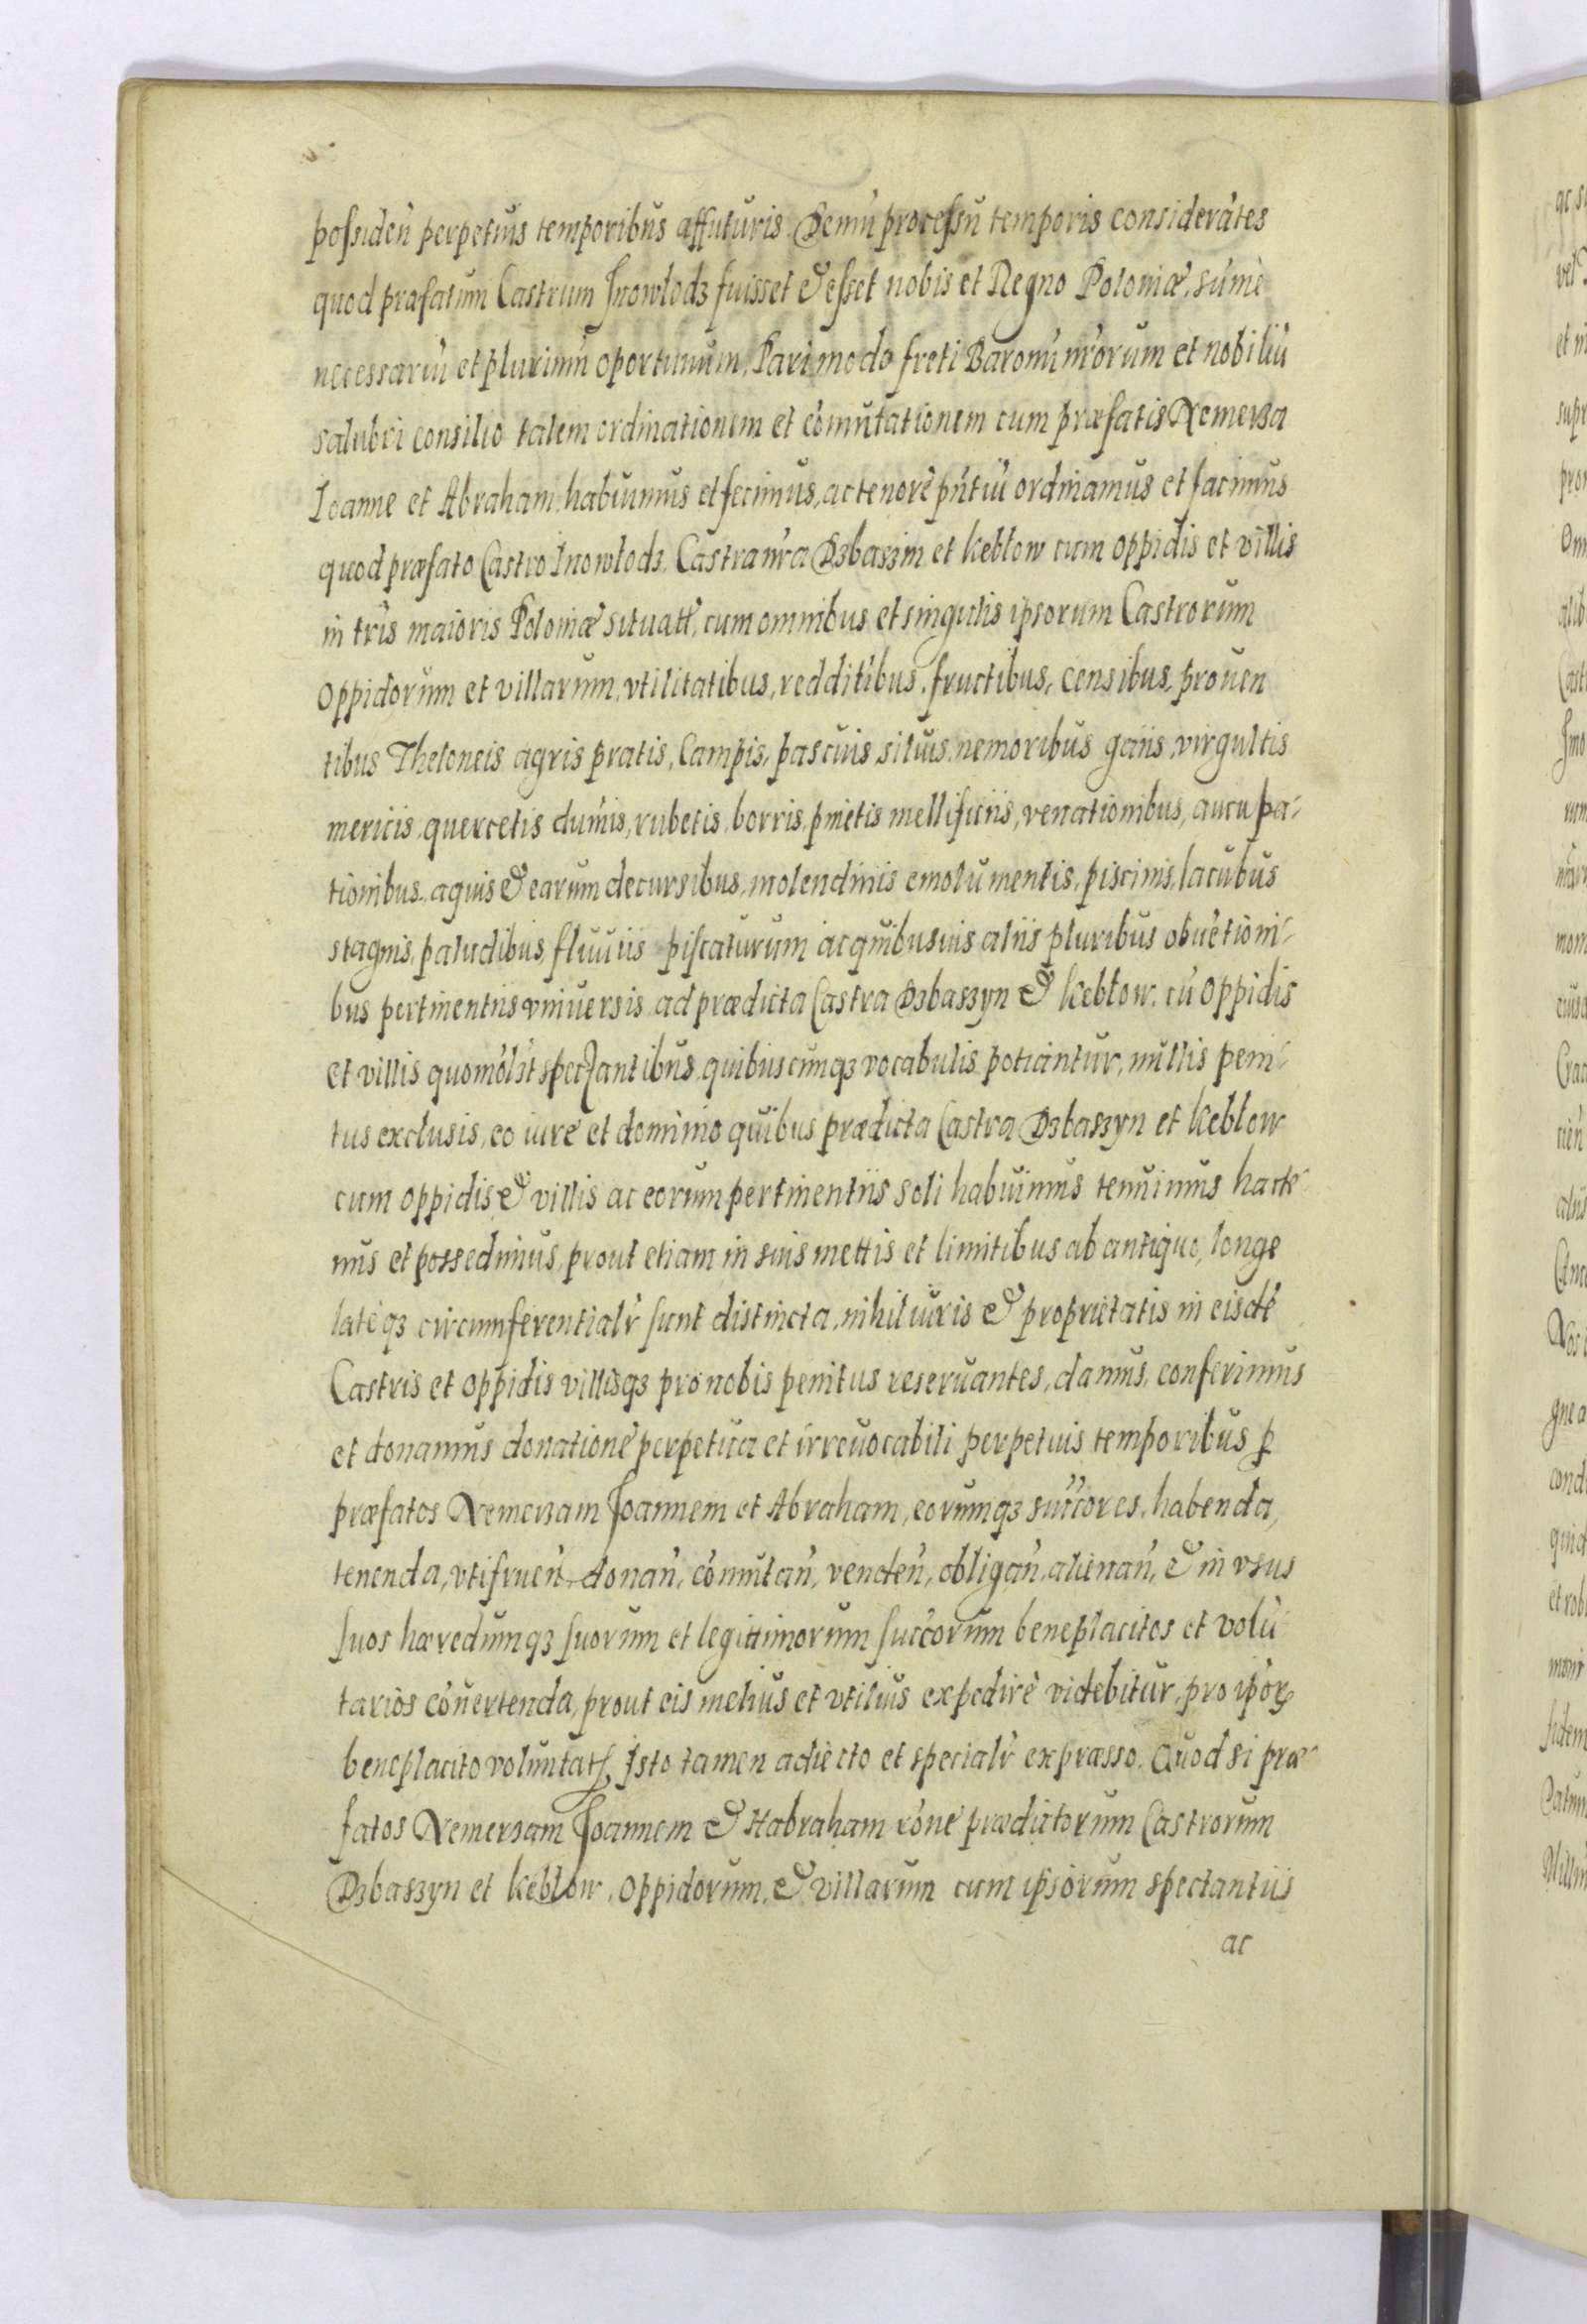 possideń perpetuis temporibus affuturis. Demū processu temporis considerātes
quod præfatum Castrum Inowlodz fuisset & esset nobis et Regno Poloniæ, sūme
necessariū et plurimū oportunum, Pari modo freti Baronū nr̄orum et nobiliū
salubri consilio talem ordinationem et cōmutationem cum præfatis Nemerza
Ioanne et Abraham habuimus et fecimus, ac tenore pn̄tiū ordinamus et facimus
quod præfato Castro Inowlodz, Castra nr̄a Dzbaszin et Keblow cum oppidis et villis
in tr̄is maioris Poloniæ situatt̄, cum omnibus et singulis ipsorum Castrorum
oppidorum et villarum, vtilitatibus, redditibus, fructibus, censibus, prouen
tibus Theloneis agris pratis, Campis, pascuis siluis, nemoribus gaiis, virgultis
mericis, quercetis dumis, rubetis, borris, pinetis mellificiis, venationibus, aucupa-
tionibus, aquis & earum decursibus, molendinis emolumentis, piscinis, lacubus
stagnis, paludibus, fluuiis piscaturum ac quibusuis aliis pluribus obuētioni-
bus pertinentiis vniuersis ad prædicta Castra Dzbaszyn & Keblow, cū oppidis
et villis quomōlʒt spectantibus quibuscunqȝ vocabulis potiantur, nullis peni-
tus exclusis, eo iure et dominio quibus prædicta Castra Dzbaszyn et Keblow
cum oppidis & villis ac eorum pertinentiis soli habuimus tenuimus hacte-
nus et possedimus, prout etiam in suis mettis et limitibus ab antiquo, longe
lateqȝ circumferentialr̄ sunt distincta, nihil iuris & proprietatis in eisdē
Castris et oppidis villisqȝ pro nobis penitus reseruantes, damus, conferimus
et donamus donatione perpetua et irreuocabili perpetuis temporibus ꝑ
præfatos Nemerzam Joannem et Abraham, eorumqȝ succ̄ores, habenda,
tenenda, vtifrueń, donań, cōmutań, vendeń, obligań, alienań, & in vsus
suos hæredumqȝ suorum et legittimorum succ̄orum beneplacitos et volū
tarios cōuertenda, prout eis melius et vtilius expedire videbitur, pro ip̄orꝝ
beneplacito voluntatꝭ, Isto tamen adiecto et specialr̄ expræsso. Quod si præ-
fatos Nemerzam Joannem & Habraham rōne prædictorum Castrorum
Dzbaszyn et Keblow, oppidorum, & villarum cum ipsorum spectantiis
ac